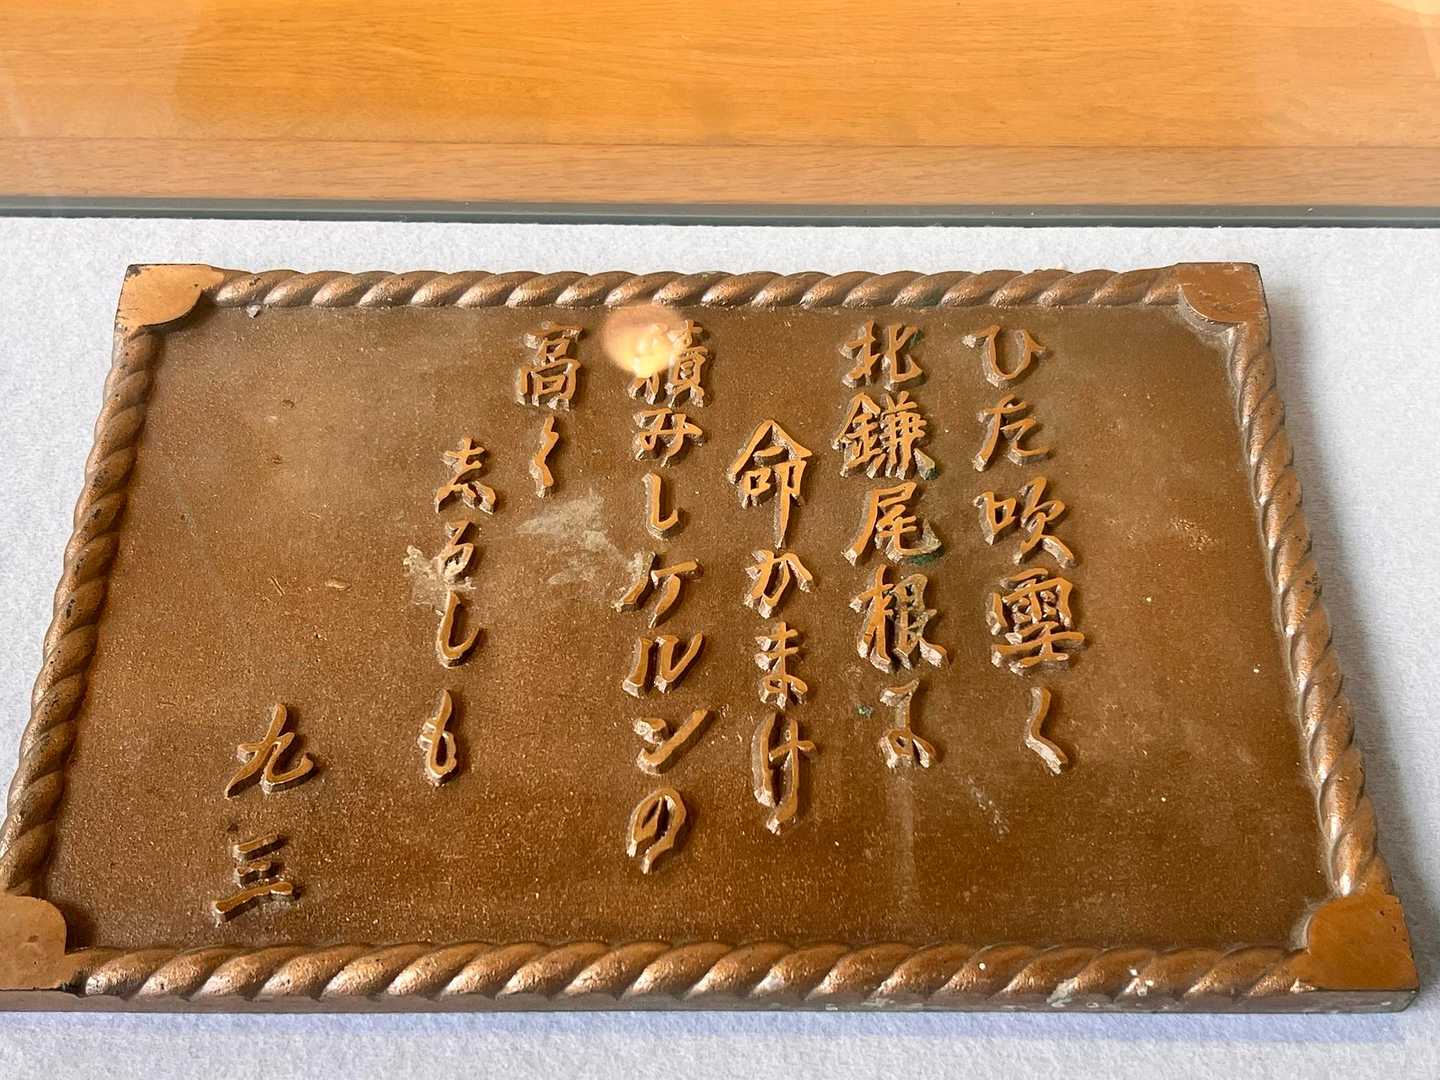 ひた吹雪く
北鎌尾根に
命かまけ
積みしケルンの
高く
志るしも
九三